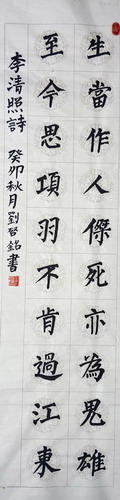 生當作人傑死亦為鬼雄
至今思項羽不肯過江東
李清照詩 癸卯秋月劉啓銘書